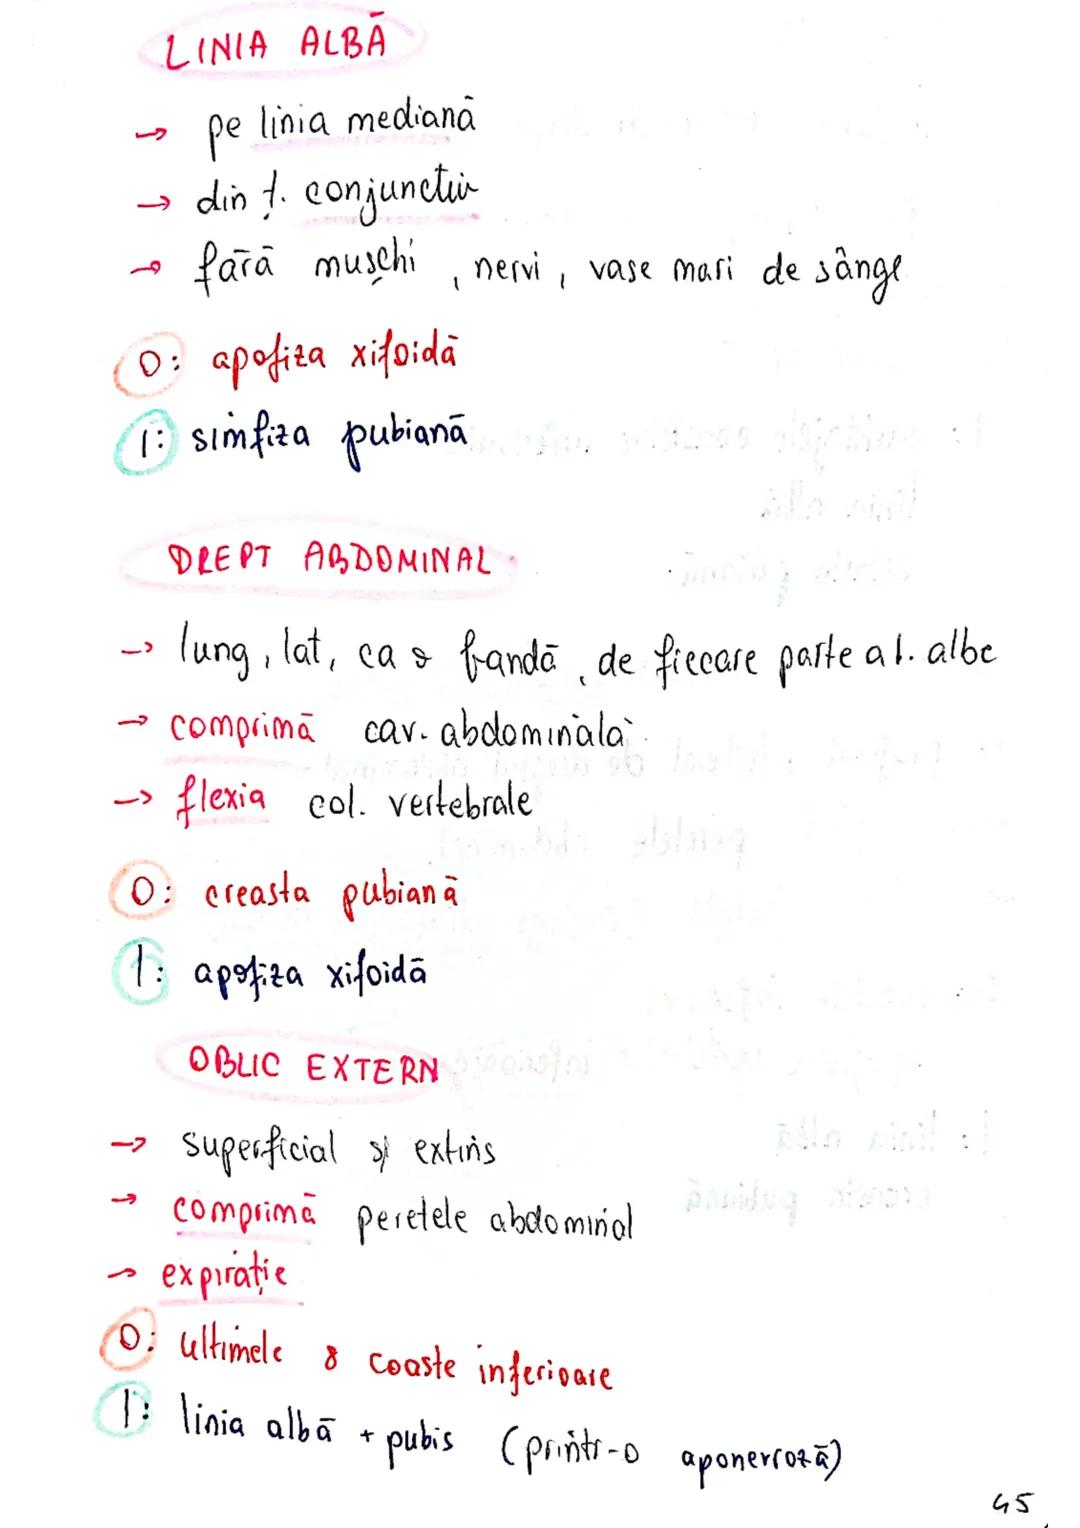 LINIA ALBĂ
→ pe linia mediană
→ din ț. conjunctiv
→ fără mușchi, nervi, vase mari de sânge
O: apofiza xifoidă
I: simfiza pubiană
DREPT ABDOMINAL
→ lung, lat, ca o bandă, de fiecare parte a l. albe
→ comprimă cav. abdominală
→ flexia col. vertebrale
O: creasta pubiană
I: apofiza xifoidă
OBLIC EXTERN
→ superficial și extins
→ comprimă peretele abdominal
→ expirație
O: ultimele 8 coaste inferioare
I: linia albă + pubis (printr-o aponevroză)
45